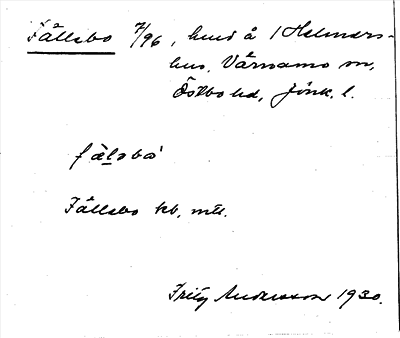 Fållsbo 7/96, hmd å 1 Helmers-
hus, Värnamo sn,
Östbo hd, Jönk. l.
fàlsbó
Fållsbo kb, mtl.
Fritz Andersson 1930.